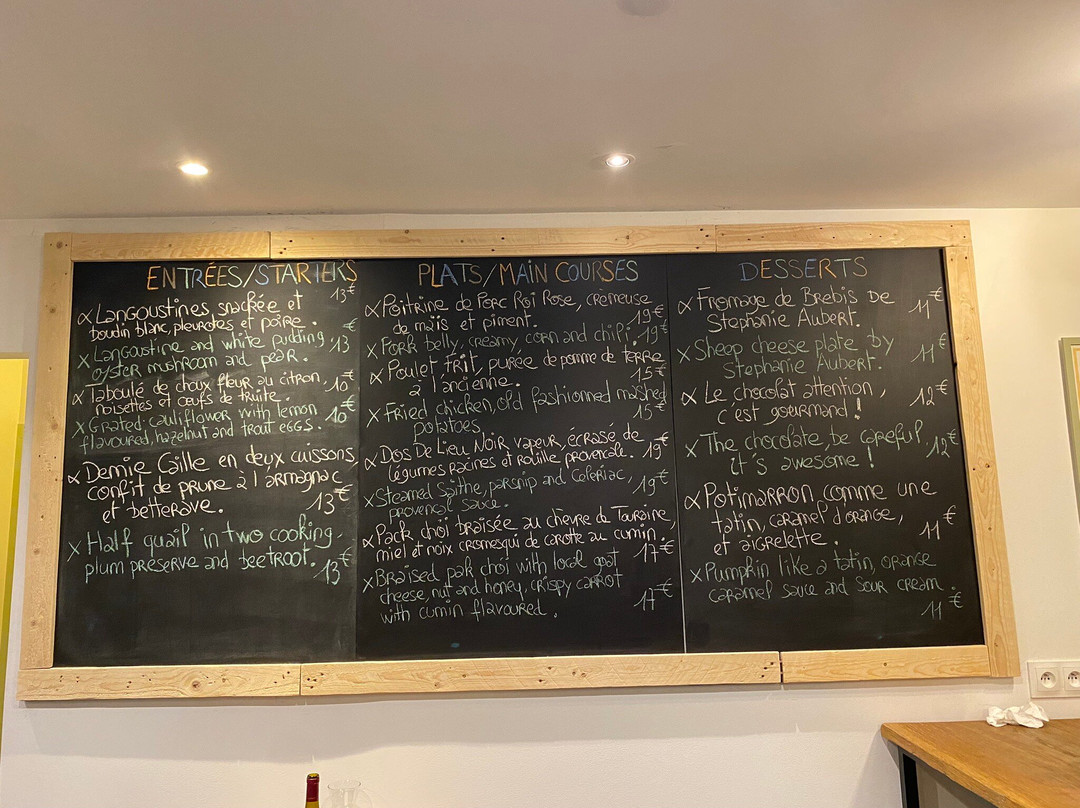 ENTRÉES/STARTERS
α Langoustines, snackée et 13€
boudin blanc, pleurotes et poire.
x Langoustine and white pudding 13€
oyster mushroom and pear.
α Taboulé de choux fleur au citron, 10€
noisettes et œufs de truite.
x Grated cauliflower with lemon 10€
flavoured, hazelnut and trout eggs.
α Demie Caille en deux cuissons,
confit de prune à l'armagnac
et betterave. 13€
x Half quail in two cooking,
plum preserve and beetroot. 13€
PLATS/MAIN COURSES
α Poitrine de Porc Roi Rose, crèmeuse
de maïs et piment. 19€
x Pork belly, creamy corn and chili. 19€
α Poulet Frit, purée de pomme de terre
à l'ancienne. 15€
x Fried chicken, old fashionned mashed
potatoes 15€
α Dos De Lieu Noir vapeur, écrasé de
légumes racines et rouille provençale. 19€
x Steamed Saithe, parsnip and Celeriac,
provençal sauce. 19€
α Pack choï braisée au chèvre de Touraine,
miel et noix cromesqui de carotte au cumin. 17€
x Braised pak choï with local goat
cheese, nut and honey, crispy carrot
with cumin flavoured. 17€
DESSERTS
α Fromage de Brebis De
Stephanie Aubert. 11€
x Sheep cheese plate by
Stephanie Aubert. 11€
α Le chocolat attention,
c'est gourmand! 12€
x The chocolate, be careful
it's awesome! 12€
α Potimarron comme une
tatin, caramel d'orange,
et aigrelette. 11€
x Pumpkin like a tatin, orange
caramel sauce and sour cream
11€